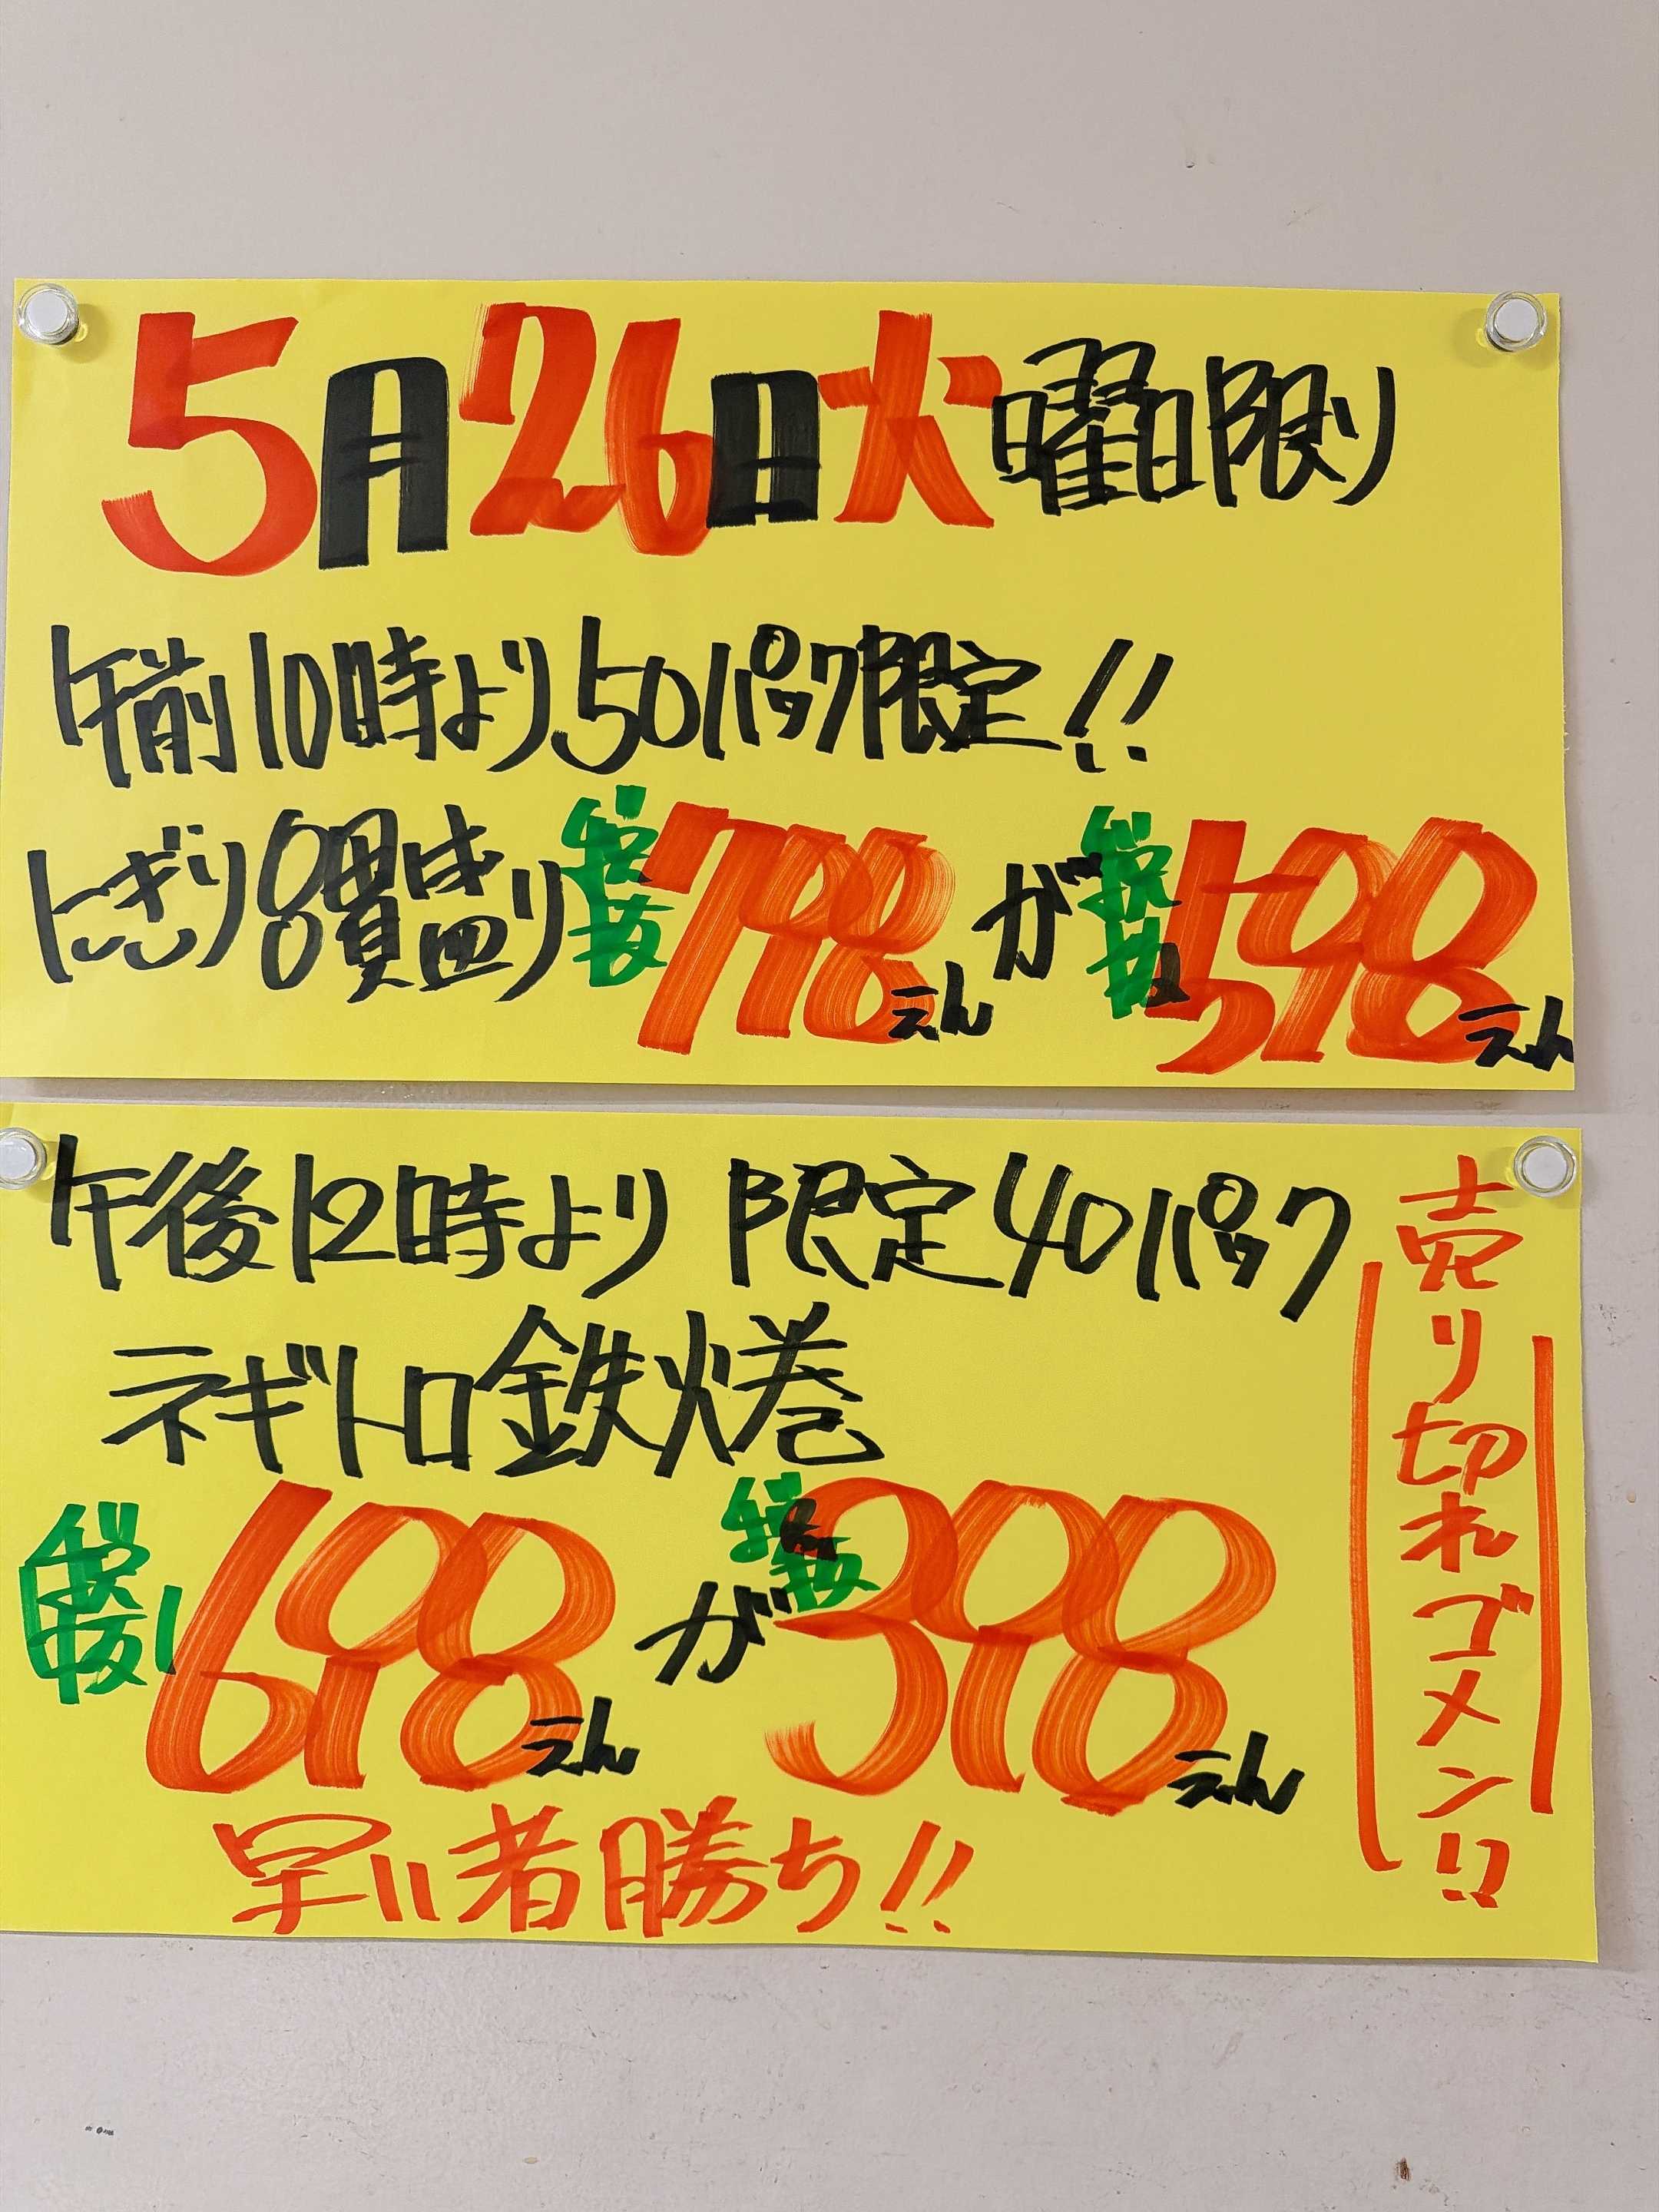 5月26日火曜日限り
午前10時より50パック限定!!
にぎり8貫盛り税抜798えんが税抜598えん
午後12時より 限定40パック
ネギトロ鉄火巻
税抜698えんが税抜398えん
早い者勝ち!!
売り切れゴメン!!